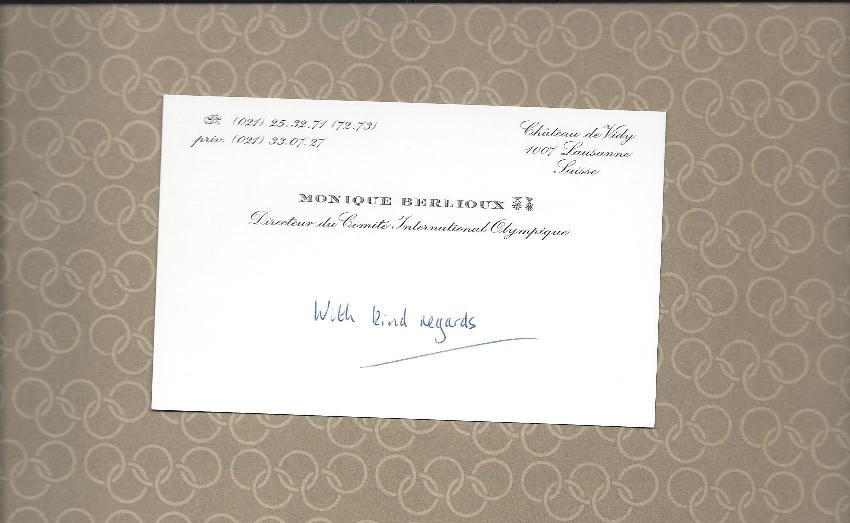 (021) 25.32.71 (72.73)
priv. (021) 33.07.27
Château de Vidy
1007 Lausanne
Suisse
MONIQUE BERLIOUX
Directeur du Comité International Olympique
With kind regards